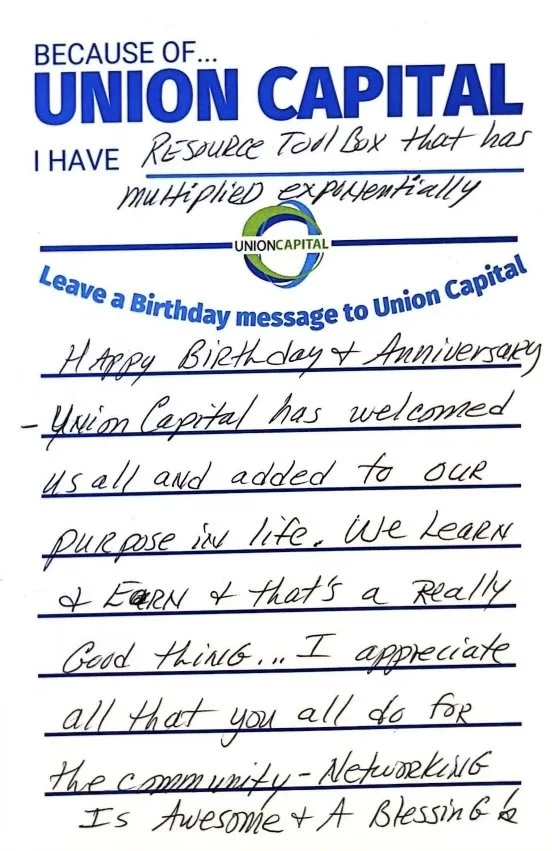 BECAUSE OF...
UNION CAPITAL
I HAVE Resource Tool Box that has
multiplied exponentially
UNIONCAPITAL
Leave a Birthday message to Union Capital
Happy Birthday & Anniversary
- Union Capital has welcomed
us all and added to our
purpose in life. We Learn
& Earn & that's a Really
Good thing... I appreciate
all that you all do for
the community - Networking
Is Awesome & A Blessing!